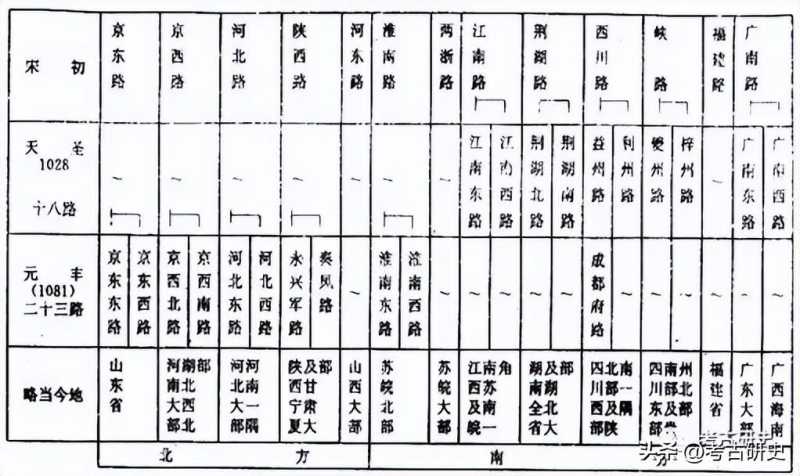 宋初
京东路
京西路
河北路
陕西路
河东路
淮南路
两浙路
江南路
荆湖路
西川路
峡路
福建路
广南路
天圣
1028
十八路
～
～
～
～
～
～
～
江南东路
江南西路
荆湖北路
荆湖南路
益州路
利州路
夔州路
梓州路
～
广南东路
广南西路
元丰
(1081)
二十三路
京东东路
京东西路
京西北路
京西南路
河北东路
河北西路
永兴军路
秦凤路
～
淮南东路
淮南西路
～
～
～
～
～
成都府路
～
～
～
～
～
～
略当今地
山东省
河南大部
湖北西北
部
河北大部
河南一隅
陕西宁夏
及甘肃大
部
山西大部
苏皖北部
苏皖大部
江西及皖
南苏南一
角
湖南全省
及湖北大
部
四川西部
北部及陕
南一隅
四川东部
南部及贵
州北部
福建省
广东大部
广西海南
北方
南方
考古研史
头条 @考古研史